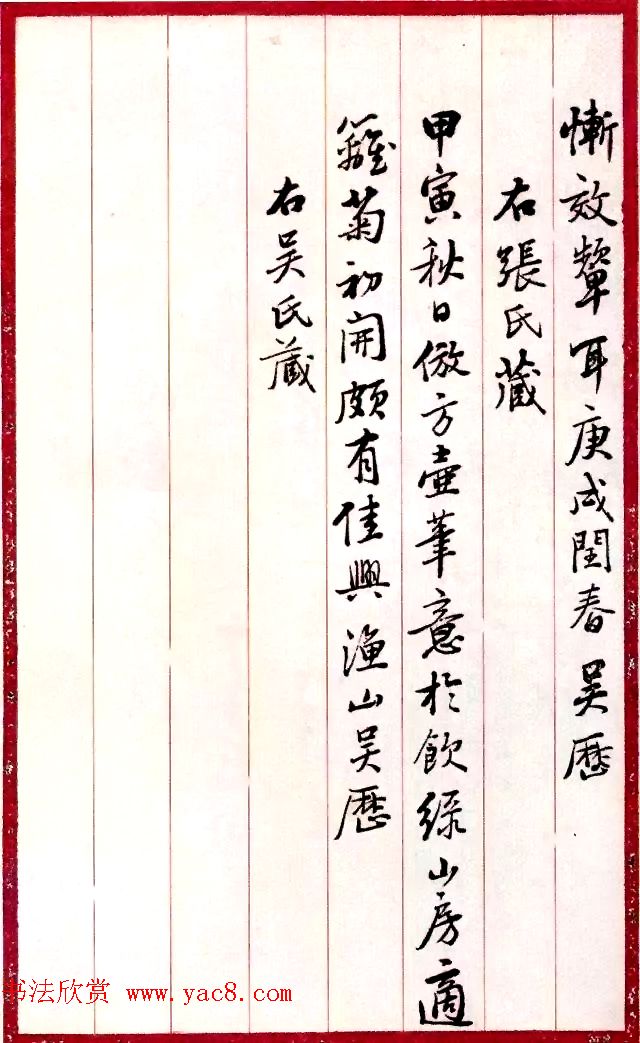 慚效顰耳庚戌閏春吳歷
右張氏藏
甲寅秋日倣方壺筆意於飲綠山房適
籬菊初開頗有佳興漁山吳歷
右吳氏藏
书法欣赏 www.yac8.com